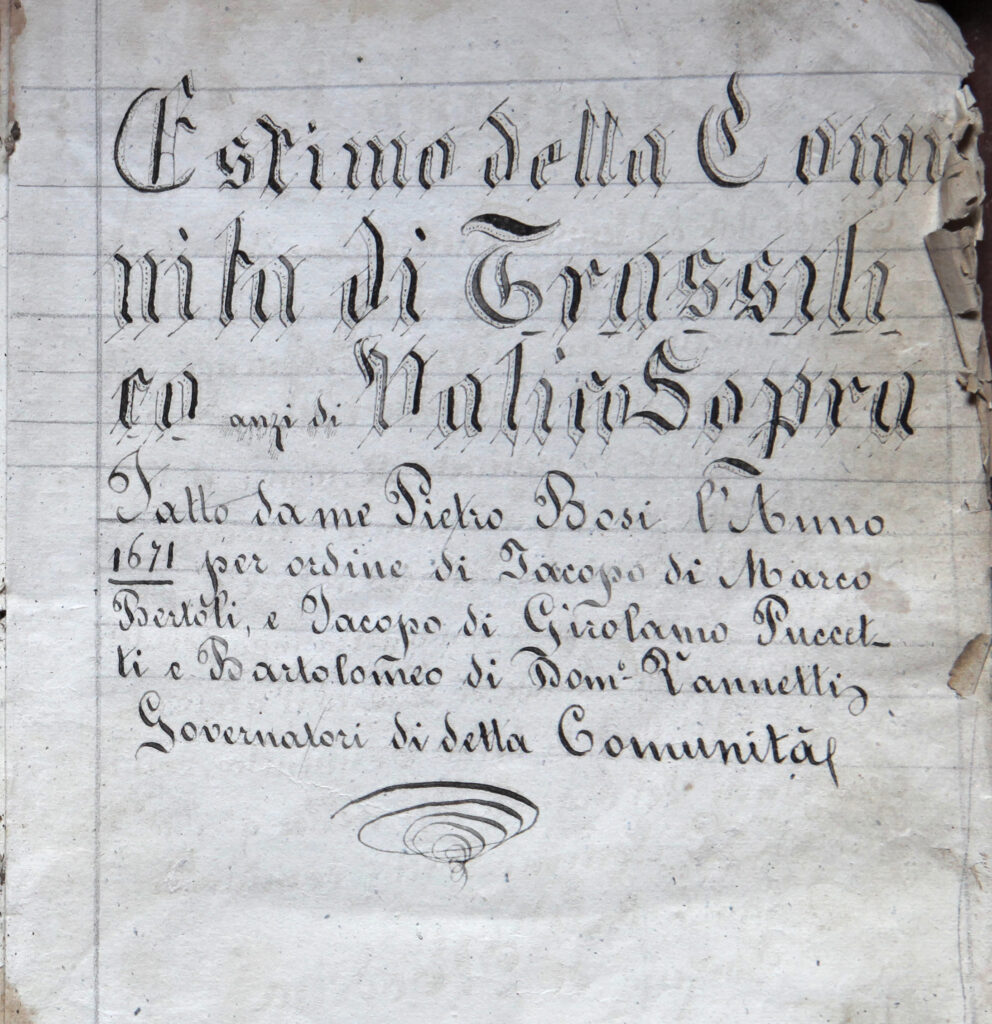 Estimo della Comu
nita di Trassili
co anzi di Palico Sopra
Fatto da me Pietro Bosi l'Anno
1671 per ordine di Jacopo di Marco
Bertoli, e Jacopo di Girolamo Puccet-
ti e Bartolomeo di Dom.º Zannetti,
Governatori di detta Comunità